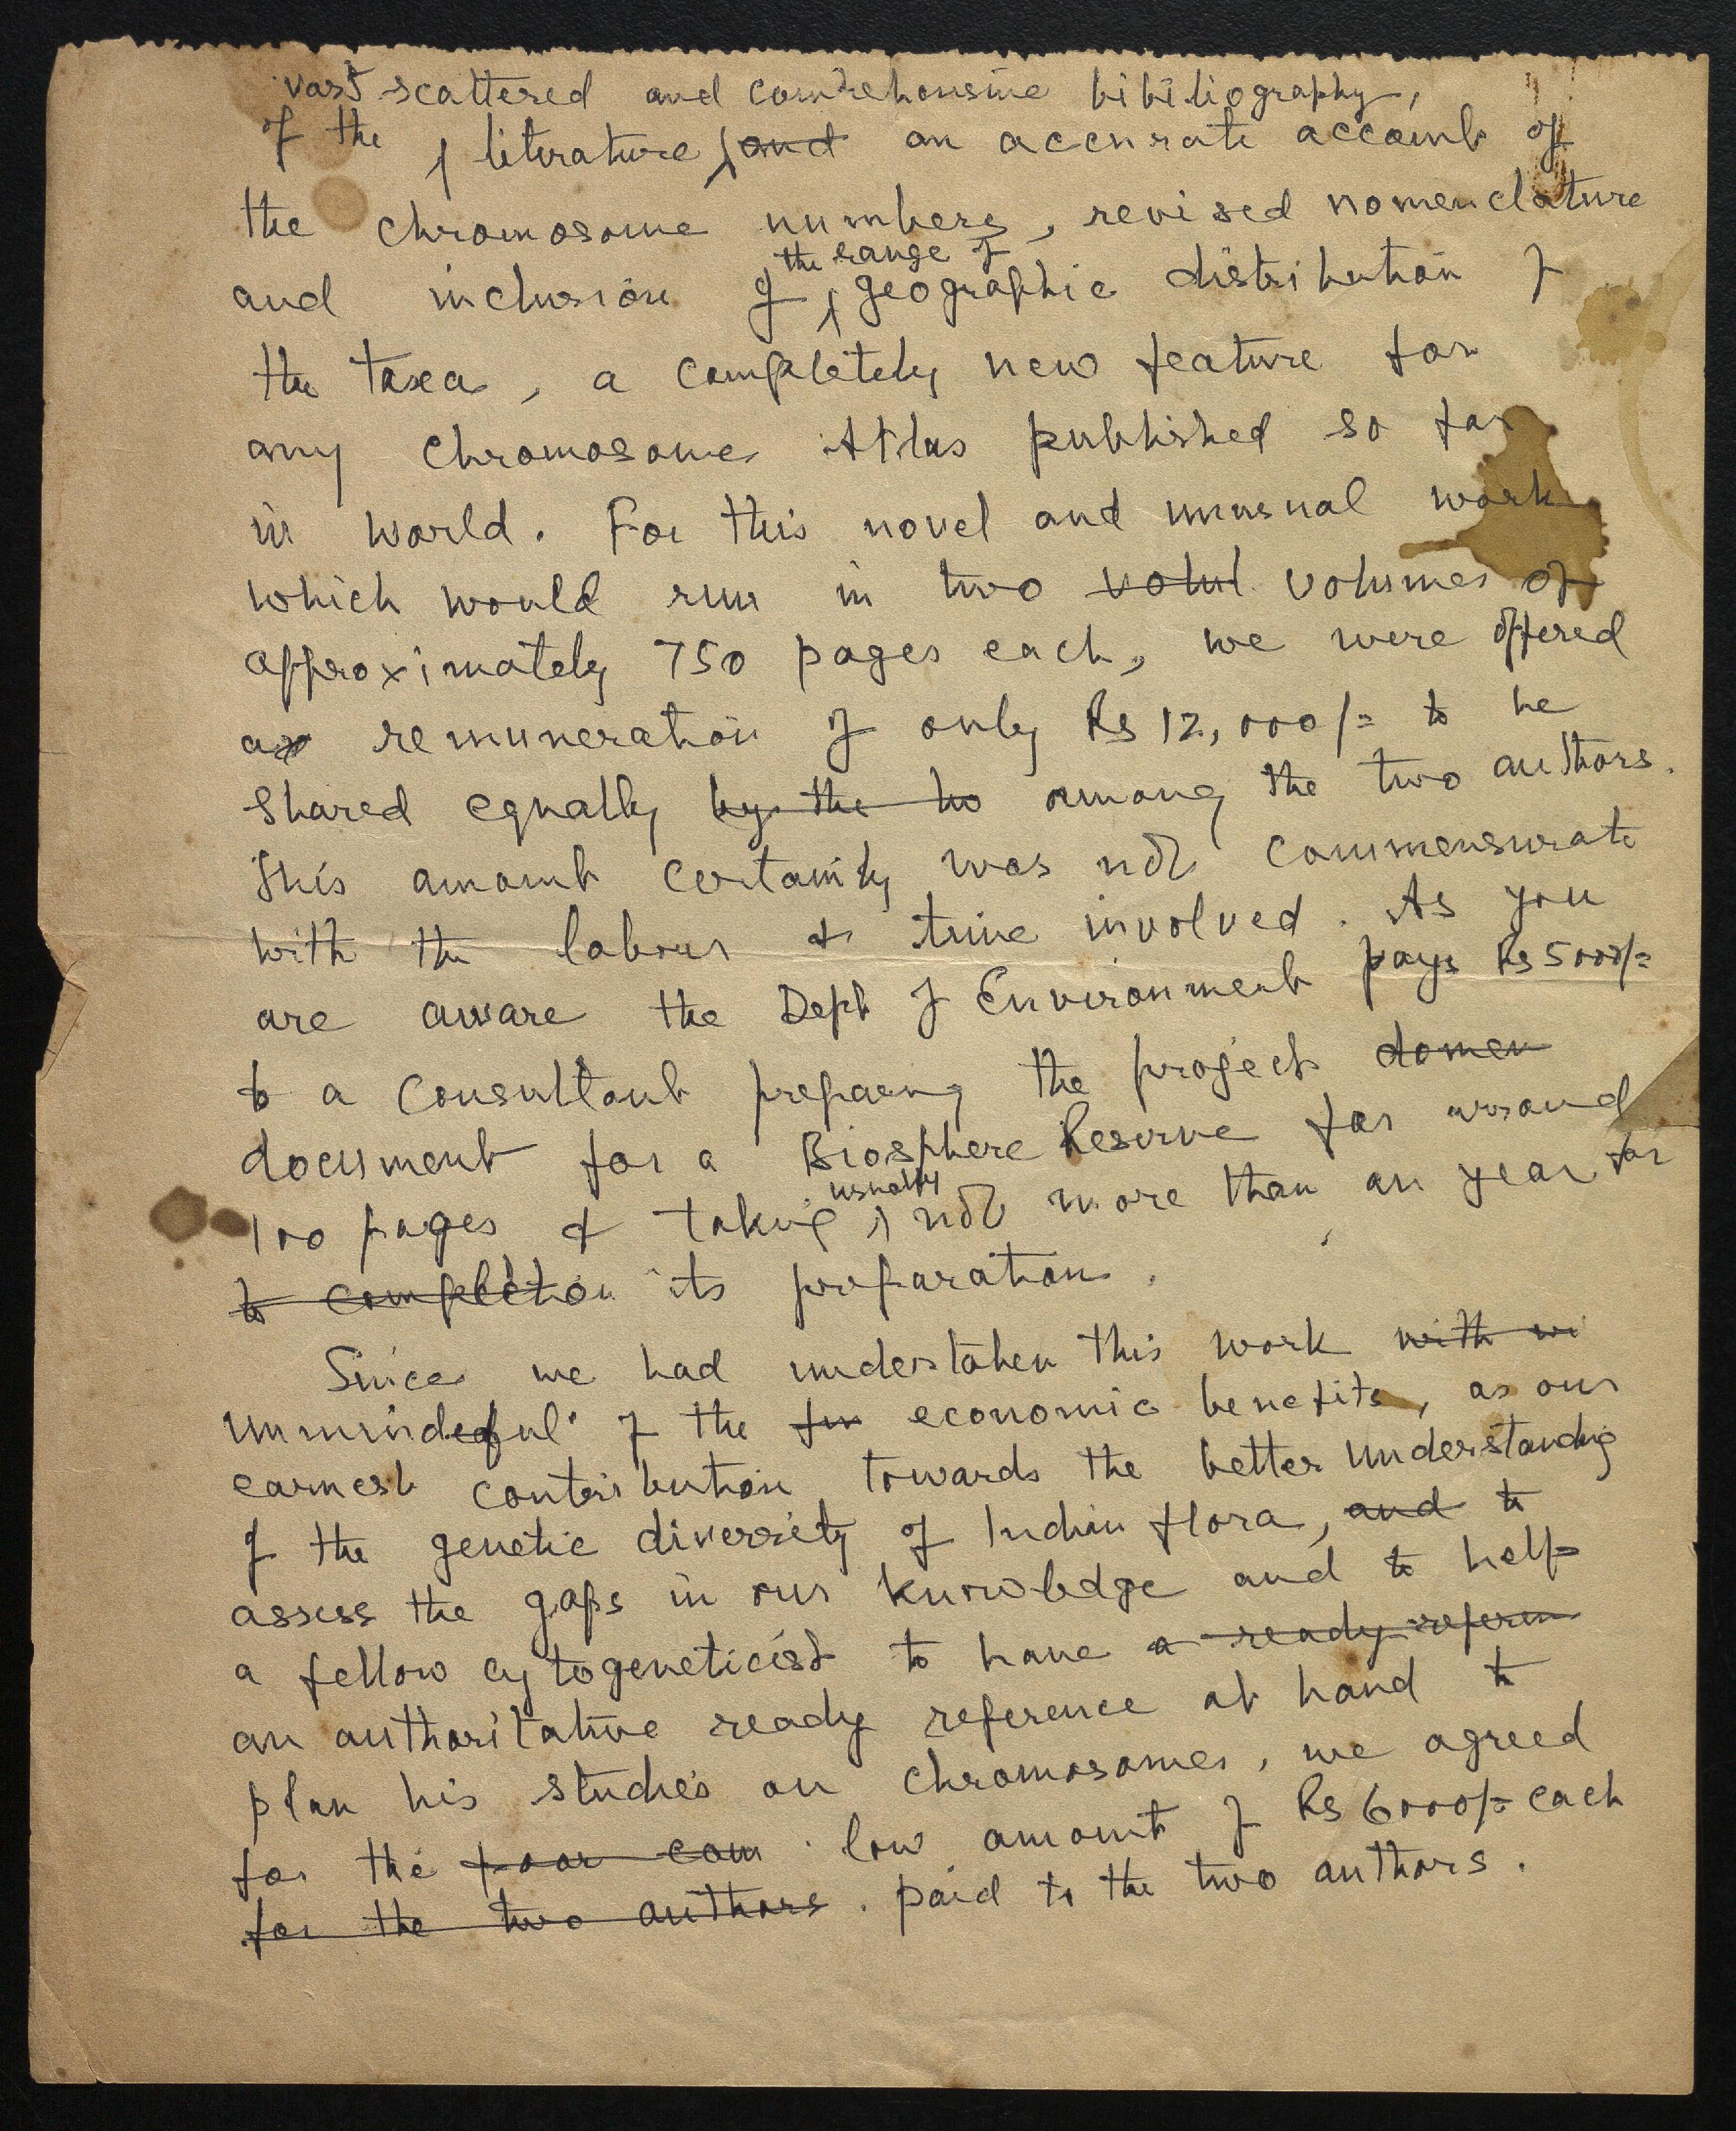 vast scattered and comrehensive bibiliography,
of the literature, and an accurate account of
the chromosome numbers, revised nomenclature
the range of
and inclusion of geographic distribution of
the taxa, a completely new feature for
any chromosome Atlas published so far
in world. For this novel and unusual work
which would run in two volul volumes of
approximately 750 pages each, we were offered
a remuneration of only Rs 12,000/= to be
shared equally by the tw among the two authors.
This amount certainly was not commensurate
with the labour & time involved. As you
are aware the Dept of Environment pays Rs 5000/=
to a consultant preparing the project domen
document for a Biosphere Reserve for around
usually
100 pages & taking not more than an year for
to completion its preparation.
Since we had undertaken this work with un
unmindeful of the fin economic benefits, as our
earnest contribution towards the better understanding
of the genetic diversity of Indian flora, and to
assess the gaps in our knowledge and to help
a fellow cytogeneticist to have a ready referen
an authoritative ready reference at hand to
plan his studies on chromosomes, we agreed
for the poor com low amount of Rs 6000/= each
for the two authors. paid to the two authors.